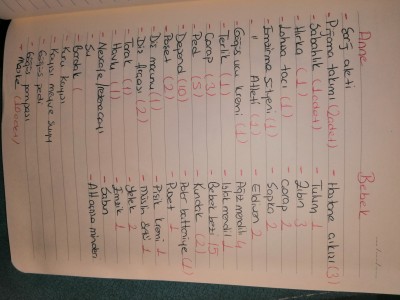 Anne
- Saç aleti
- Pijama takımı 2 adet
- Sabahlık (1 adet)
- Hırka (1)
- Lohusa tacı (1)
- Emzirme sütyeni (1)
- " Atleti (1)
- Göğüs ucu kremi (1)
- Terlik (1)
- Çorap (2)
- Ped (5)
- Depend (10)
- Poset (2)
- Diş macunu (1)
- Diş fırçası (2)
- Tarak (1)
- Havlu (1)
- Nescafe
- Su
- Bardak (
- Kuru kayısı
- Kayısı meyve suyu
- Göğüs pedi
- Göğüs pompası
- Maske (10 adet)
Bebek
- Hastane çıkışı (3)
- Tulum 1
- Zıbın 3
- Çorap 2
- Şapka 2
- Eldiven 2
- Ağız mendili 4
- Islak mendil 1
- Bebek bezi 15
- Kundak (2)
- Polar battaniye (1)
- Puset 1
- Pişik kremi 1
- Müslin 1
- Yelek 2
- Emzik 1
- Sabun
- Alt açma minderi